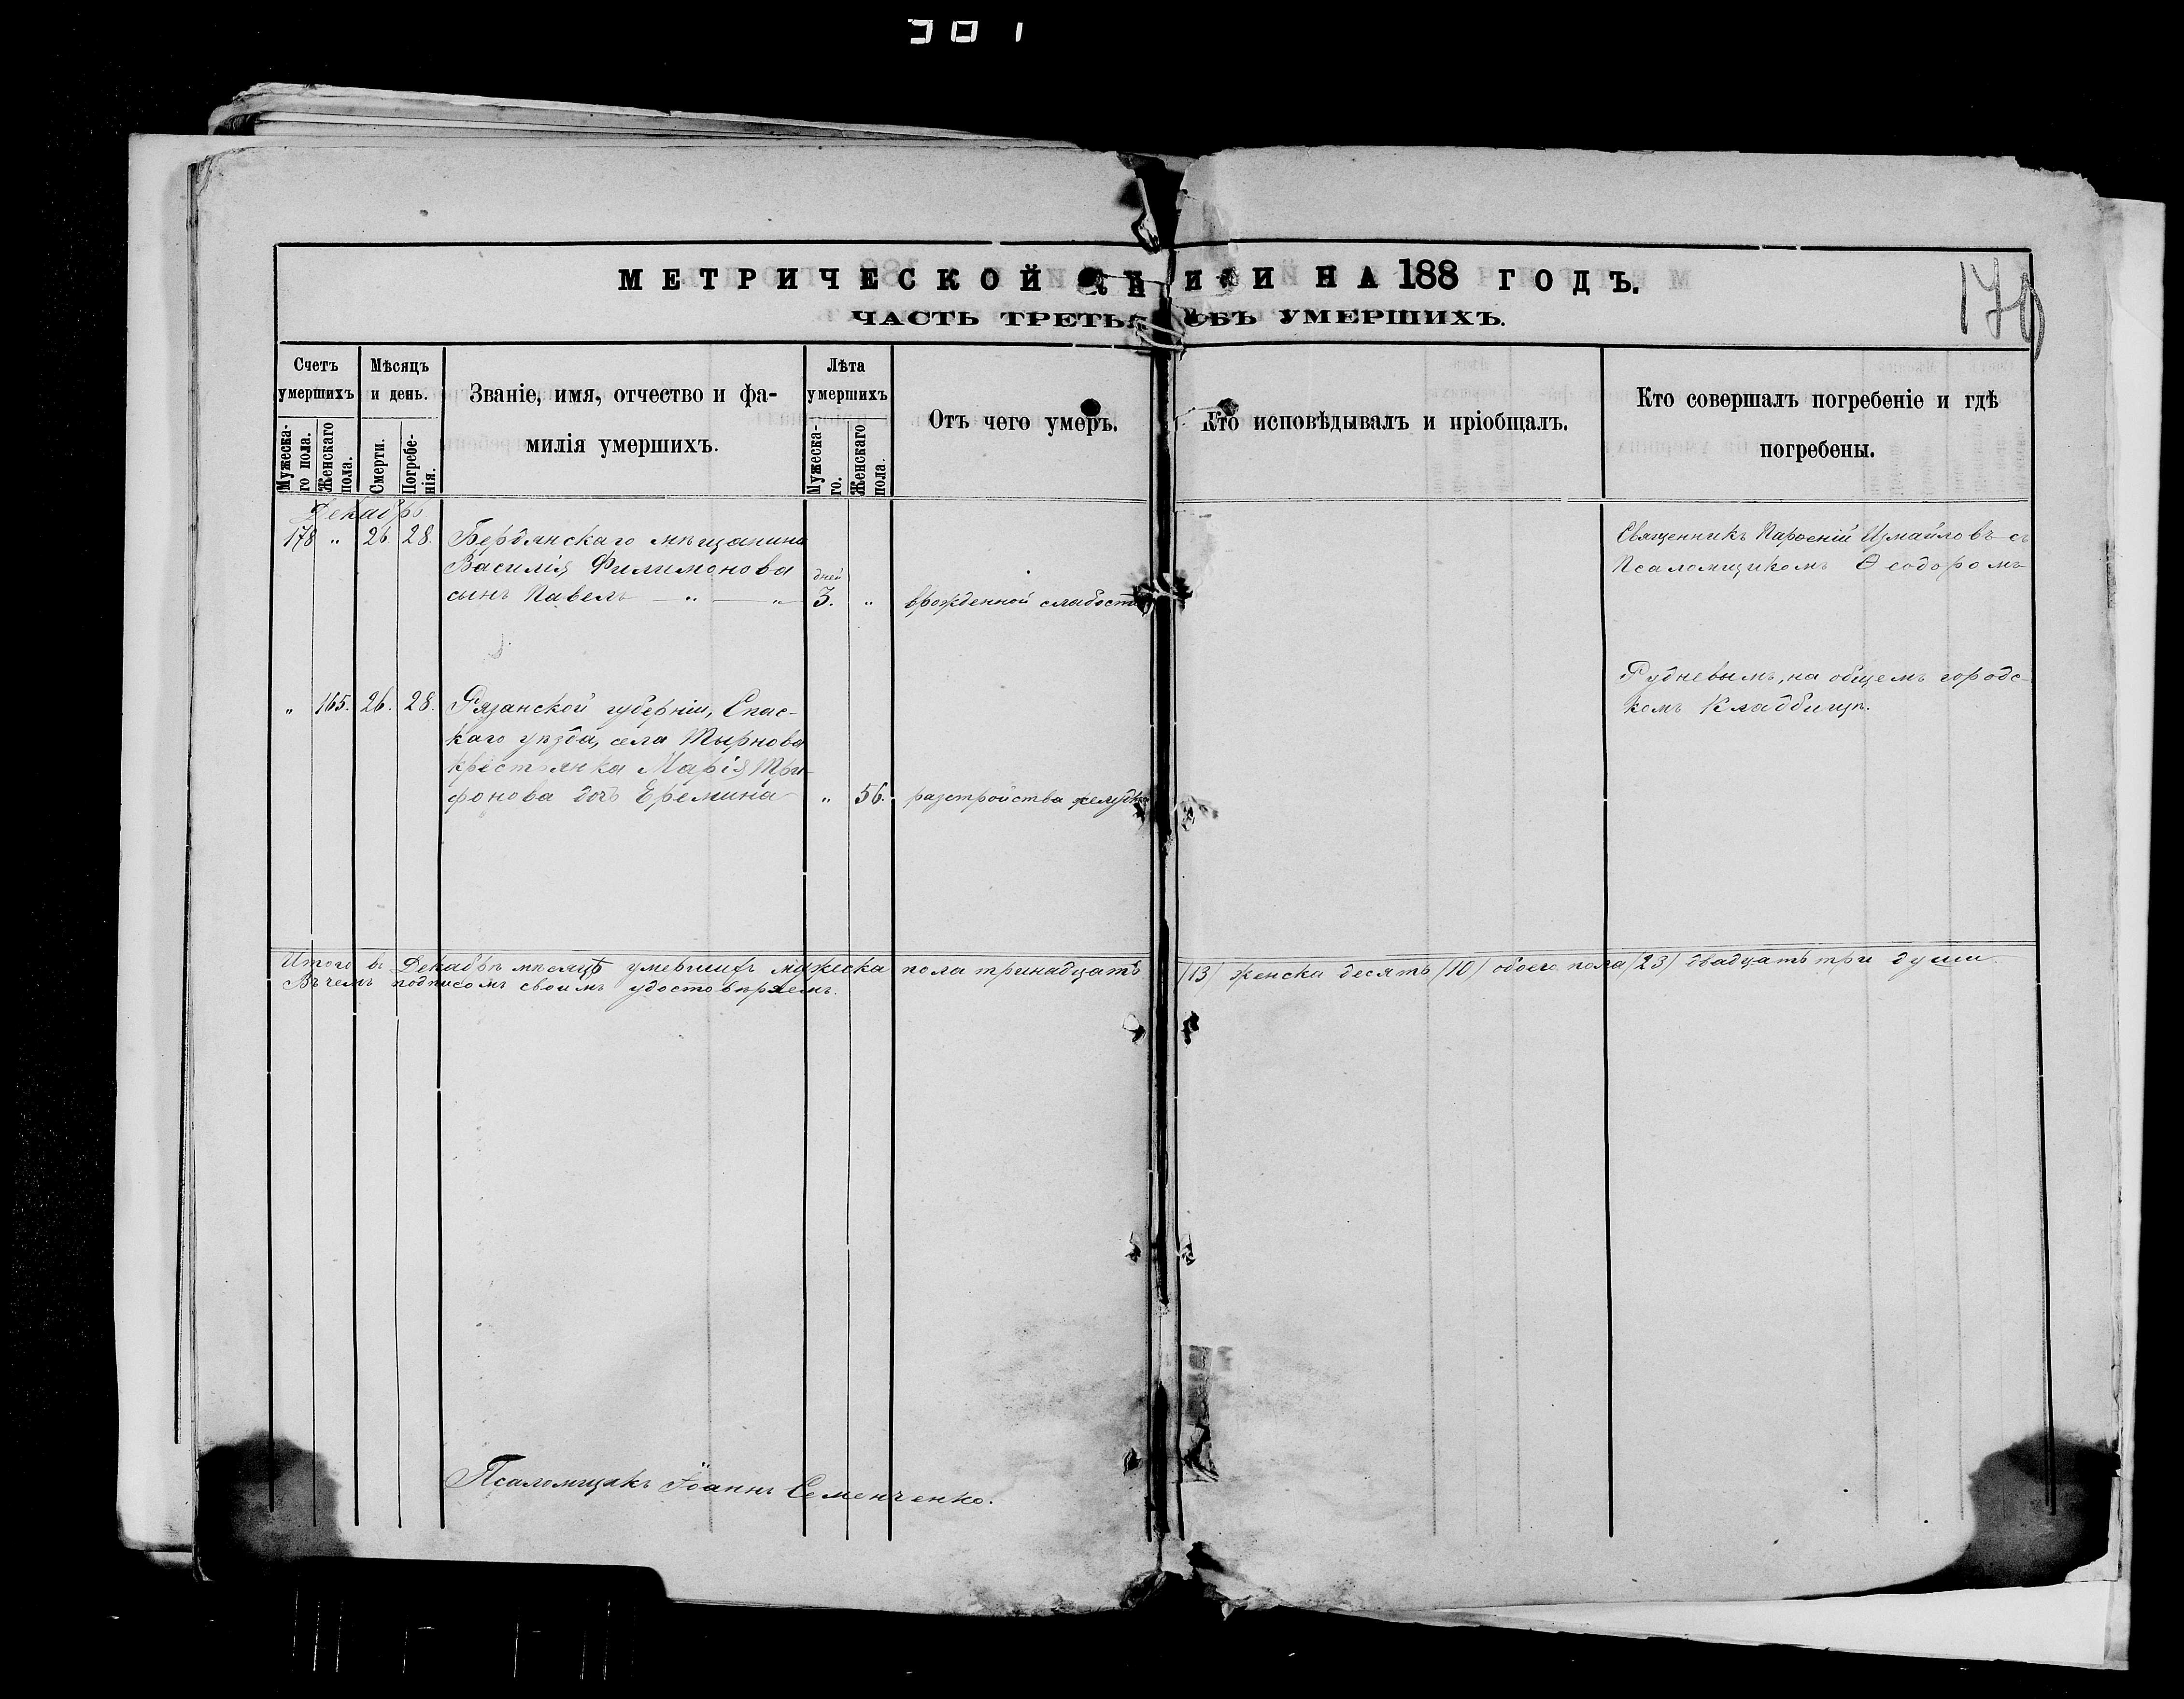 301
МЕТРИЧЕСКОЙ КНИГИ НА 188 ГОДЪ.
170
ЧАСТЬ ТРЕТЬЯ ОБЪ УМЕРШИХЪ.
Счетъ умершихъ
Мѣсяцъ и день.
Званіе, имя, отчество и фа-
милія умершихъ.
Лѣта умершихъ
Отъ чего умеръ.
Кто исповѣдывалъ и пріобщалъ.
Кто совершалъ погребеніе и гдѣ
погребены.
Мужеска-
го пола.
Женскаго
пола.
Смерти.
Погребе-
нія.
Мужеска-
го.
Женскаго
пола.
Декабрь
178 " 26 28. Бердянскаго мѣщанина
Василія Филимонова
сынъ Павелъ — " — "
дней
3. " врожденной слабости
Священникъ Парѳеній Измайловъ съ
Псаломщикомъ Ѳеодоромъ
Рудневымъ, на общемъ городс-
комъ Кладбищѣ.
" 165. 26. 28. Рязанской губерніи, Спас-
каго уѣзда, села Тырнова
крестьянка Марія Три-
фонова дочь Еремина " 56. разстройства желудка
Итого въ Декабрѣ мѣсяцѣ умершихъ мужеска пола тринадцать /13/ женска десять /10/ обоего пола /23/ двадцать три души.
Въ чемъ подписомъ своимъ удостовѣряемъ.
Псаломщикъ Іоаннъ Семенченко.